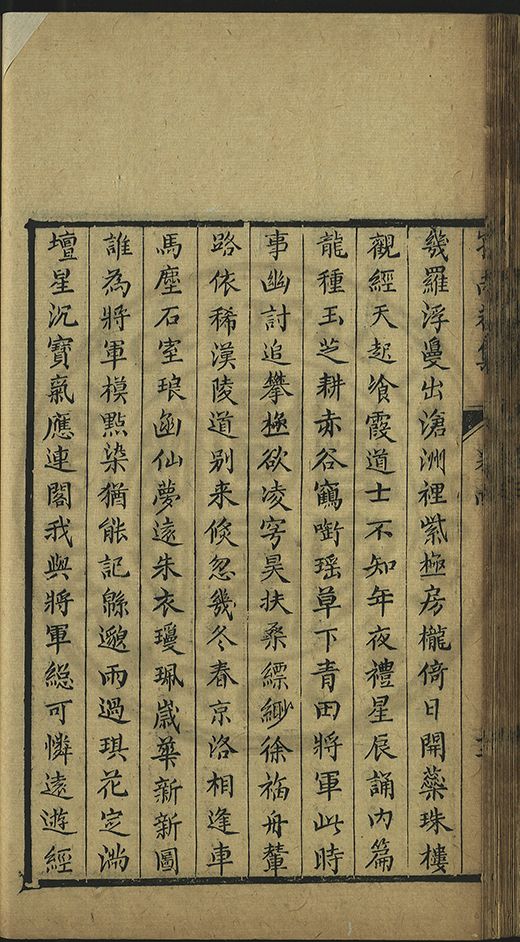 幾羅浮曼出滄洲裡紫極房櫳倚日開蘂珠樓
觀經天起飡霞道士不知年夜禮星辰誦內篇
龍種玉芝耕赤谷鶴啣瑶草下青田將軍此時
事幽討追攀極欲凌穹昊扶桑縹緲徐福舟輦
路依稀漢陵道别来倐忽幾冬春京洛相逢車
馬塵石室琅函仙夢遠朱衣瓊珮嵗華新新圖
誰為將軍模㸃染猶能記緜邈雨過琪花定滿
壇星沉寶氣應連閣我與將軍緫可憐遠遊經